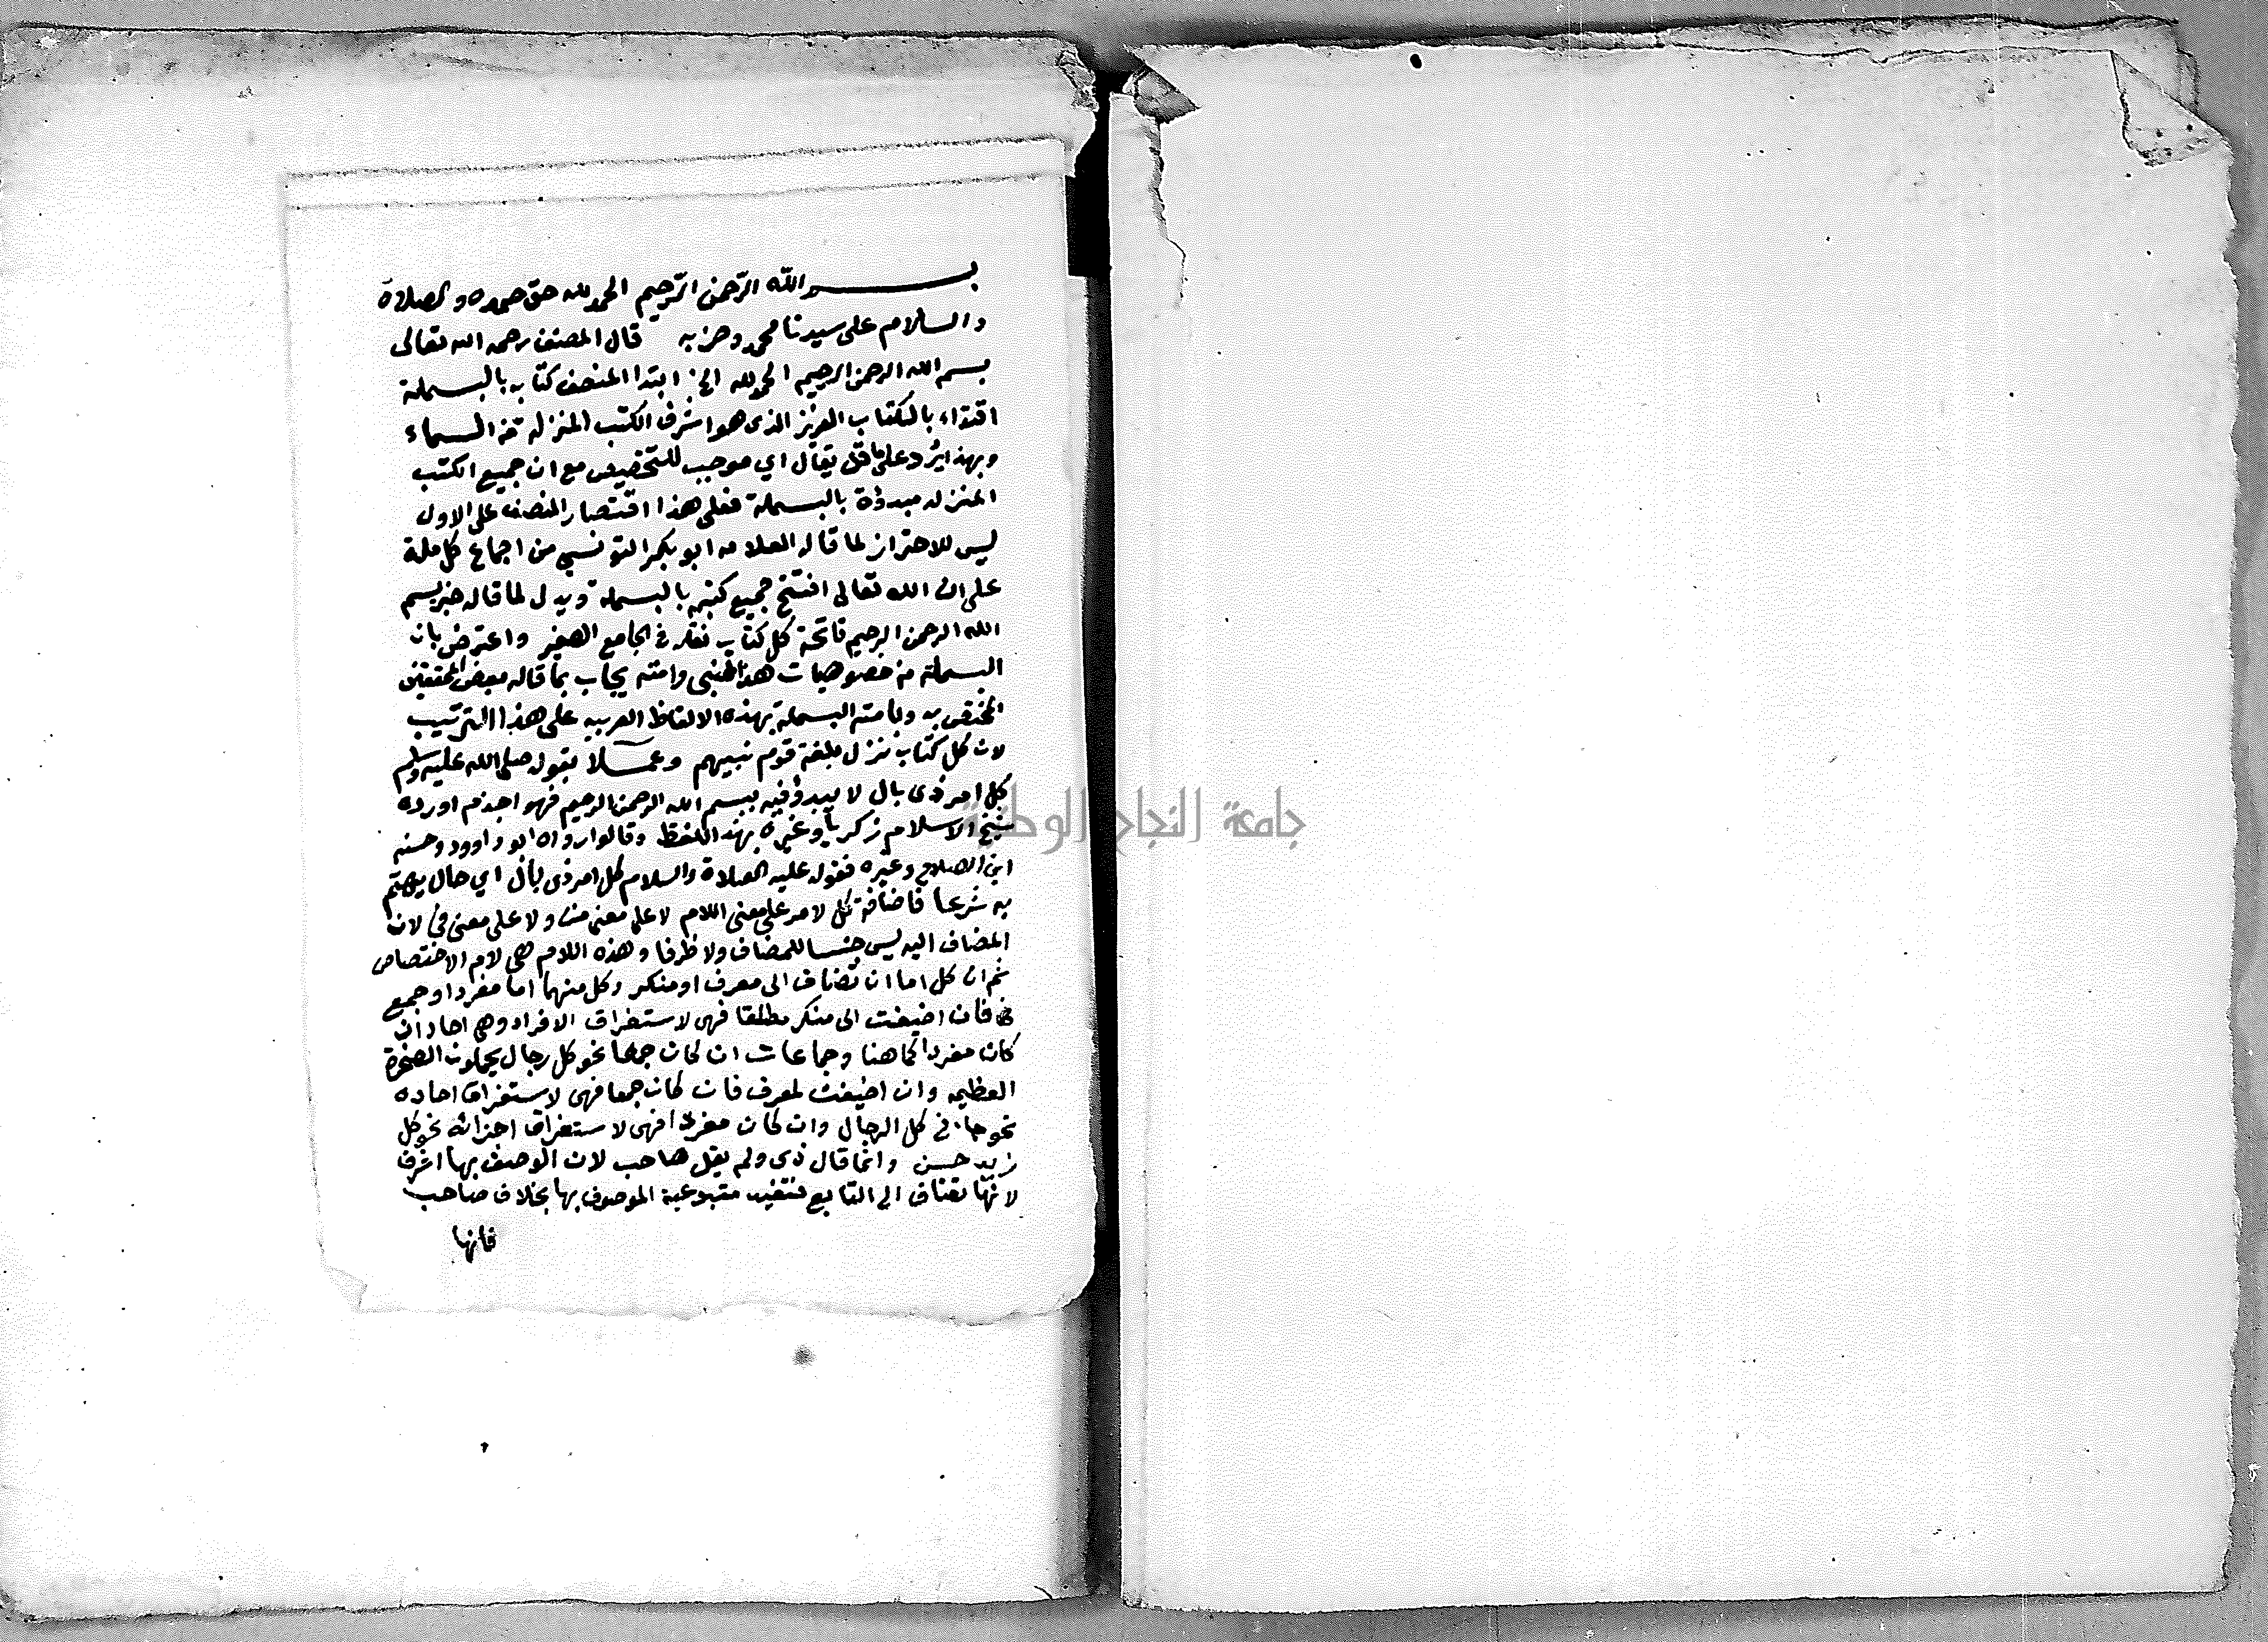 بسم الله الرّحمن الرّحيم الحمد لله حق حمده والصلاة
والسلام على سيدنا محمد وحزبه قال المصنف رحمه الله تعالى
بسم الله الرحمن الرحيم الحمد لله الخ ابتدا المصنف كتابه بالبسملة
اقتداء بالكتاب العزيز الذى هو اشرف الكتب المنزله من السماء
وبهذا يرد على ما قد يقال اي موجب للتخصيص مع ان جميع الكتب
المنزله مبدؤة بالبسملة فعلى هذا اقتصار المصنف على الاول
ليس للاحتراز لما قاله العلامه ابو بكر التونسي من اجماع كل ملة
على ان الله تعالى افتتح جميع كتبه بالبسملة ويدل لما قاله خبر بسم
الله الرحمن الرحيم فاتحة كل كتاب نقله في الجامع الصغير واعترض بان
البسملة من خصوصيات هذا النبى وامته يجاب بما قاله بعض المحققين
المختص به وبامته البسملة بهذه الالفاظ العربيه على هذا الترتيب
لان كل كتاب نزل بلغة قوم نبيهم وعملا بقوله صلى الله عليه وسلم
كل امر ذى بال لا يبدؤ فيه ببسم الله الرحمن الرحيم فهو اجذم اورده
شيخ الاسلام زكريا وغيره بهذا اللفظ وقالوا رواه ابو داوود وحسنه
ابن الصلاح وغيره فقوله عليه الصلاة والسلام كل امر ذى بال اي حال يهتم
به شرعا فاضافة كل لامر على معنى اللام لا على معنى من ولا على معنى في لان
المضاف اليه ليس جنسا للمضاف ولا ظرفا وهذه اللام هي لام الاختصاص
ثم ان كل اما ان تضاف الى معرف او منكر وكل منهما اما مفرد او جمع
فان اضيفت الى منكر مطلقا فهى لاستغراق الافراد وهى احاد ان
كان مفردا كما هنا وجماعات ان كان جمعا نحو كل رجال يحملون الصخرة
العظيمه وان اضيفت لمعرف فان كان جمعا فهى لاستغراق احاده
نحو جاءنى كل الرجال وان كان مفردا فهى لاستغراق اجزائه نحو كل
زيد حسن وانما قال ذى ولم يقل صاحب لان الوصف بها اشرف
لانها تضاف الى التابع فتفيد متبوعية الموصوف بها بخلاف صاحب
فانها
جامعة النجاح الوطنية